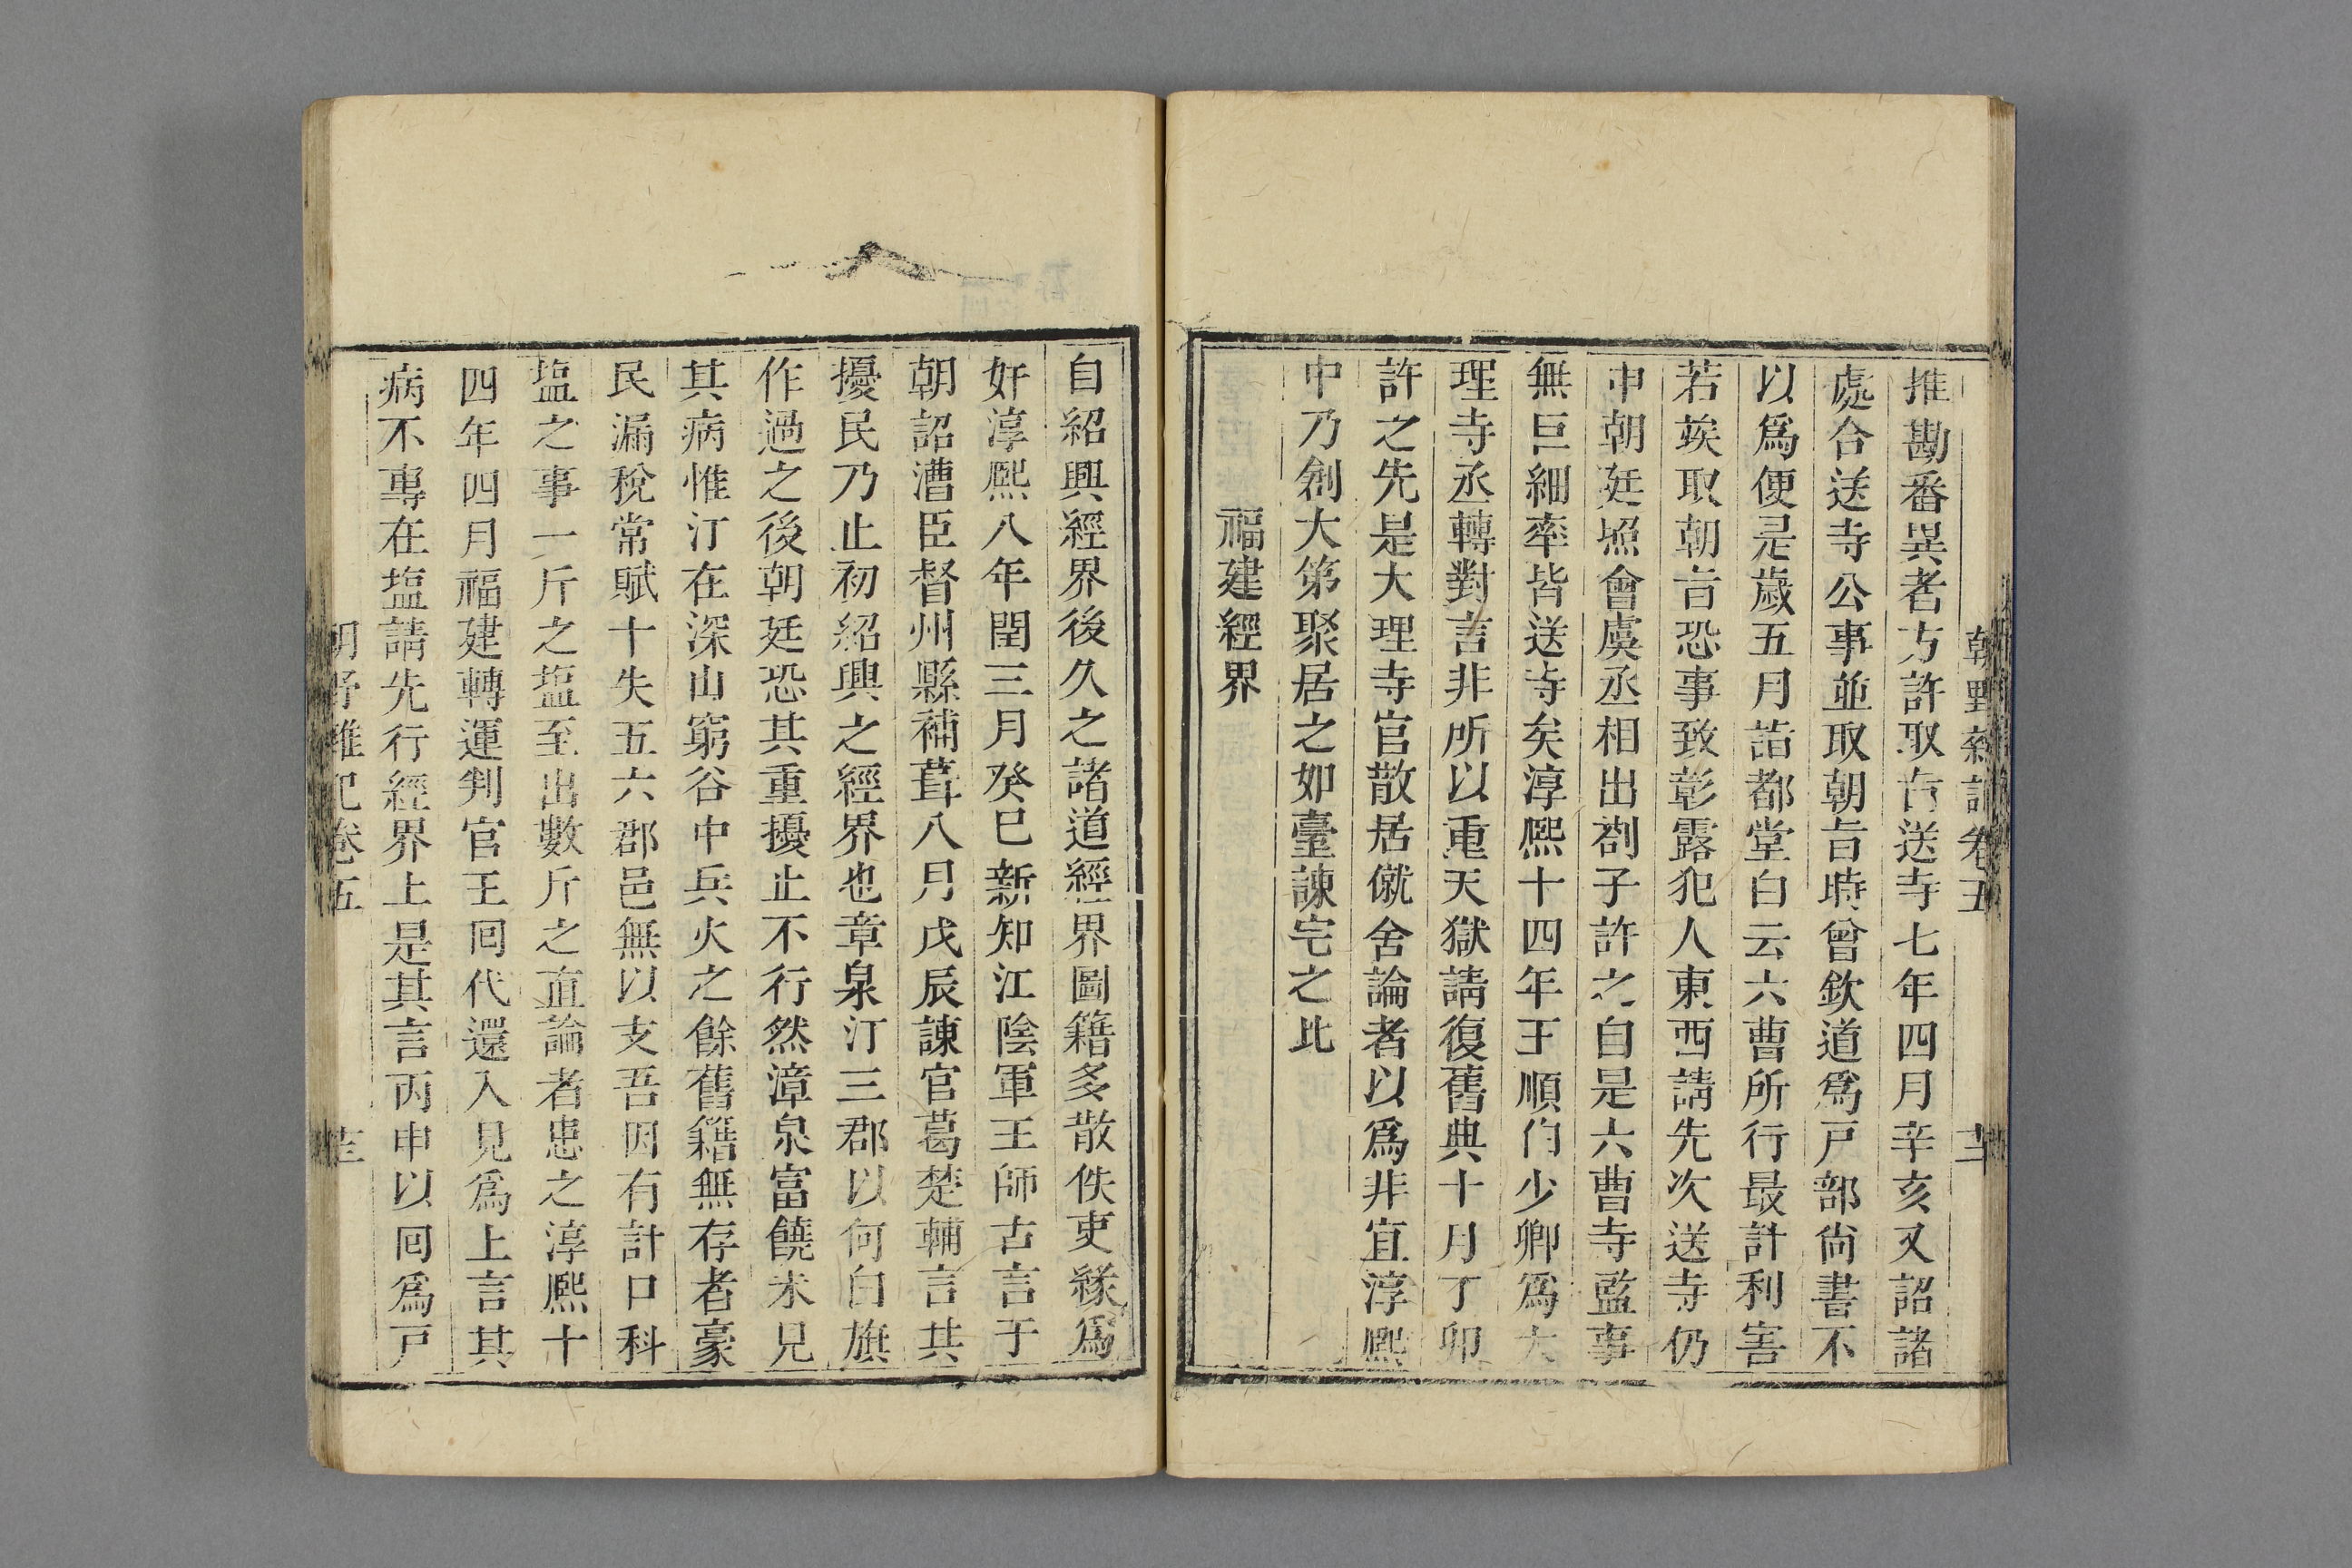 朝野雜記卷五
推勘番異者方許取旨送寺七年四月辛亥又詔諸
處合送寺公事並取朝旨時曾欽道爲戸部尚書不
以爲便是歲五月詣都堂白云六曹所行最計利害
若竢取朝旨恐事致彰露犯人東西請先次送寺仍
申朝廷照會虞丞相出劄子許之自是六曹寺監事
無巨細率皆送寺矣淳熙十四年王順伯少卿爲大
理寺丞轉對言非所以重天獄請復舊典十月丁卯
許之先是大理寺官散居僦舍論者以爲非宜淳熙
中乃創大第聚居之如臺諫宅之比
福建經界
自紹興經界後久之諸道經界圖籍多散佚吏緣爲
奸淳熙八年閏三月癸巳新知江陰軍王師古言于
朝詔漕臣督州縣補葺八月戊辰諫官葛楚輔言其
擾民乃止初紹興之經界也章泉汀三郡以何白旗
作過之後朝廷恐其重擾止不行然漳泉富饒未見
其病惟汀在深山窮谷中兵火之餘舊籍無存者豪
民漏稅常賦十失五六郡邑無以支吾因有計口科
塩之事一斤之塩至出數斤之直論者患之淳熙十
四年四月福建轉運判官王回代還入見爲上言其
病不專在塩請先行經界上是其言丙申以回爲戸
朝野雜記卷五